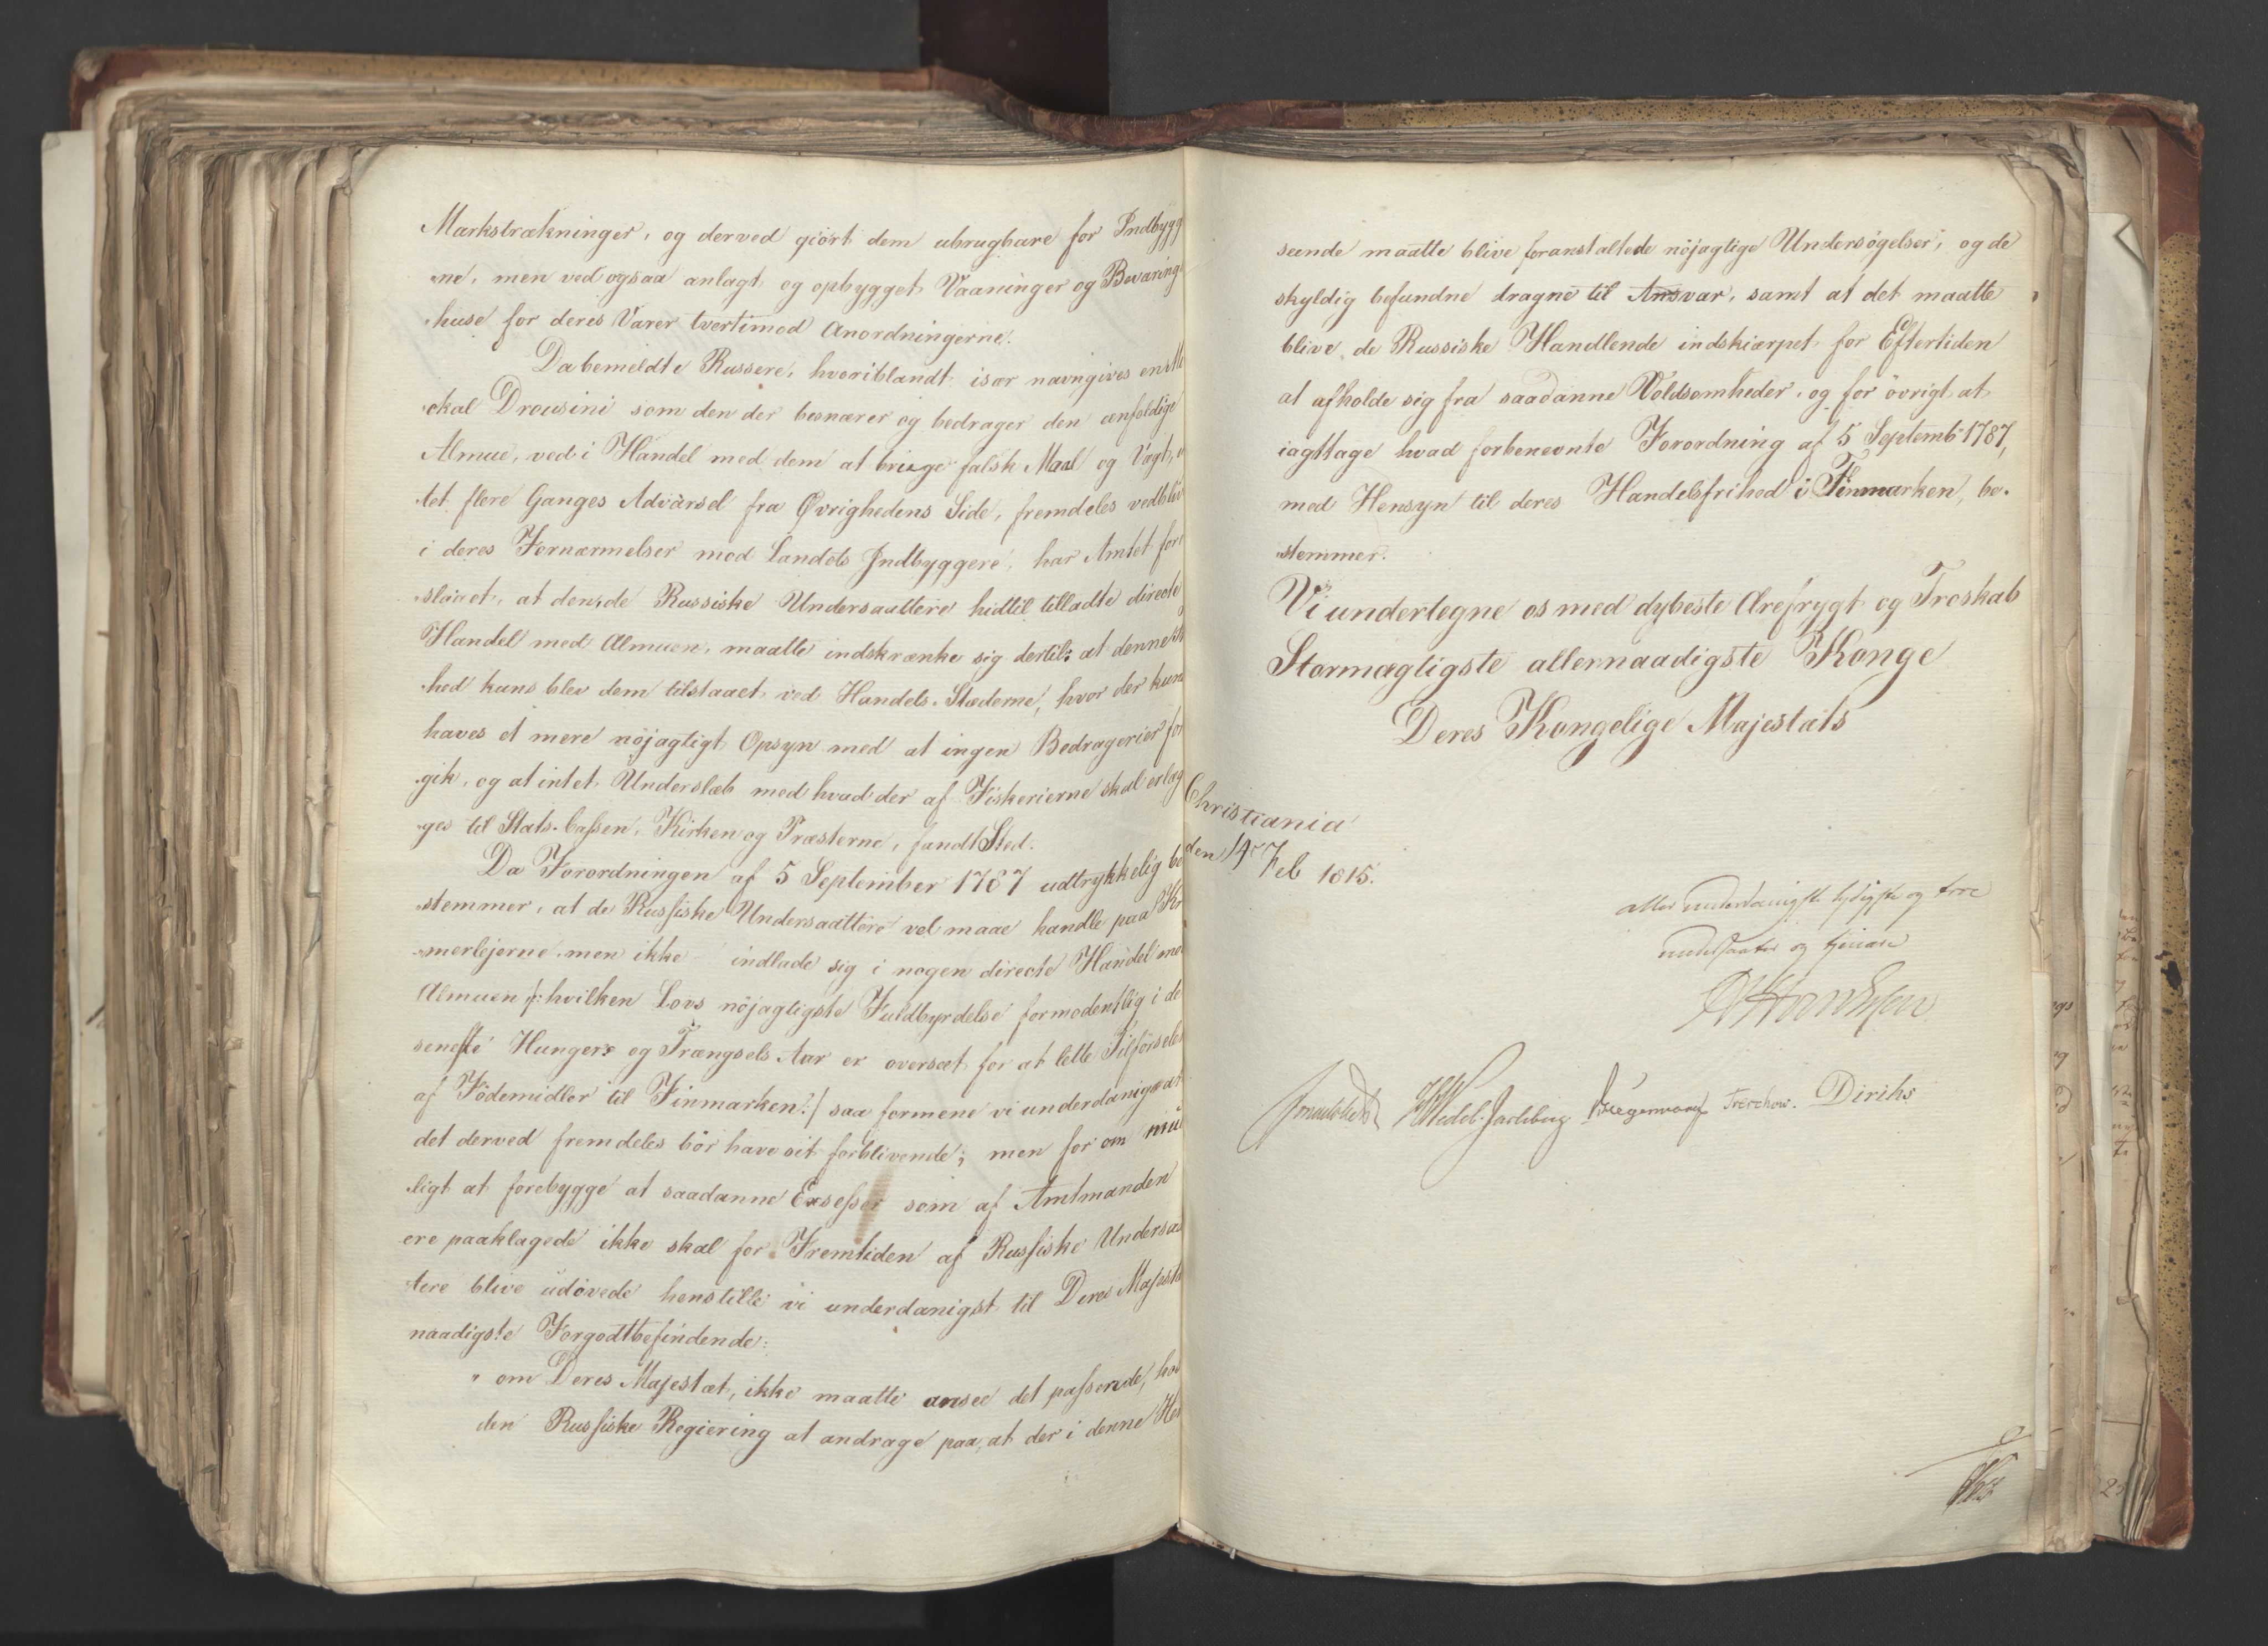 Markstrækninger, og derved giört dem ubrugbare for Indbygg
ne, men ved ogsaa anlagt og opbygget Vaaninger og Bevarings
huse for deres Varer tvertimod Anordningerne.
Da bemeldte Russere, hvoriblandt især navngives en Mi
chal Drousini som den der besnærer og bedrager den eenfoldige
Almue, ved i Handel med dem at bruge falsk Maal og Vægt,
tet flere Ganges Advarsel fra Øvrighedens Side, fremdeles vedbliv
i deres Fornærmelser mod Landets Indbyggere, har Amtet fore
slaaet, at den, de Russiske Undersaattere hidtil tilladte directe
Handel med Almuen, maatte indskrænke sig dertil: at denne
hed kuns blev dem tilstaaet ved Handels-Stæderne, hvor der kun
haves et mere nöjagtigt Opsyn med at ingen Bedragerier for
gik, og at intet Underslæb med hvad der af Fiskerierne skal erlæg
ges til Stats-Cassen, Kirken og Præsterne, fandt Sted.
Da Forordningen af 5 September 1787 udtrykkelig be
stemmer, at de Russiske Undersaattere vel maae handle paa Kr
merlejerne men ikke indlade sig i nogen directe Handel med
Almuen /: hvilken Lovs nöjagtigste Fuldbyrdelse formodentlig i de
seneste Hungers og Trængsels Aar er overseet for at lette Tilförselen
af Födemidler til Finmarken :/ saa formene vi underdanigst at
det derved fremdeles bör have sit forblivende; men for om mu
ligt at forebygge at saadanne Exsesser som af Amtmanden
ere paaklagede ikke skal for Fremtiden af Russiske Undersaa
tere blive udövede henstille vi underdanigst til Deres Majestæts
naadigste Forgodtbefindende:
" om Deres Majestæt, ikke maatte ansee det passende, hos
den Russiske Regiering at andrage paa, at der i denne Hen
seende maatte blive foranstaltede nöjagtige Undersögelser, og de
skyldig befundne dragne til Ansvar, samt at det maatte
blive de Russiske Handlende indskiærpet for Eftertiden
at afholde sig fra saadanne Voldsomheder, og for övrigt at
iagttage hvad forbenevnte Forordning af 5 Septembr 1787,
med Hensyn til deres Handelsfrihed i Finmarken, be-
stemmer.
Vi undertegne os med dybeste Ærefrygt og Troskab
Stormægtigste allernaadigste Konge
Deres Kongelige Majestæts
Christiania
den 14 Feb 1815.
aller underdanigste lydigste og troe
undersaatter og tjenere
Wedel-Jarlsberg Treschow. Diriks